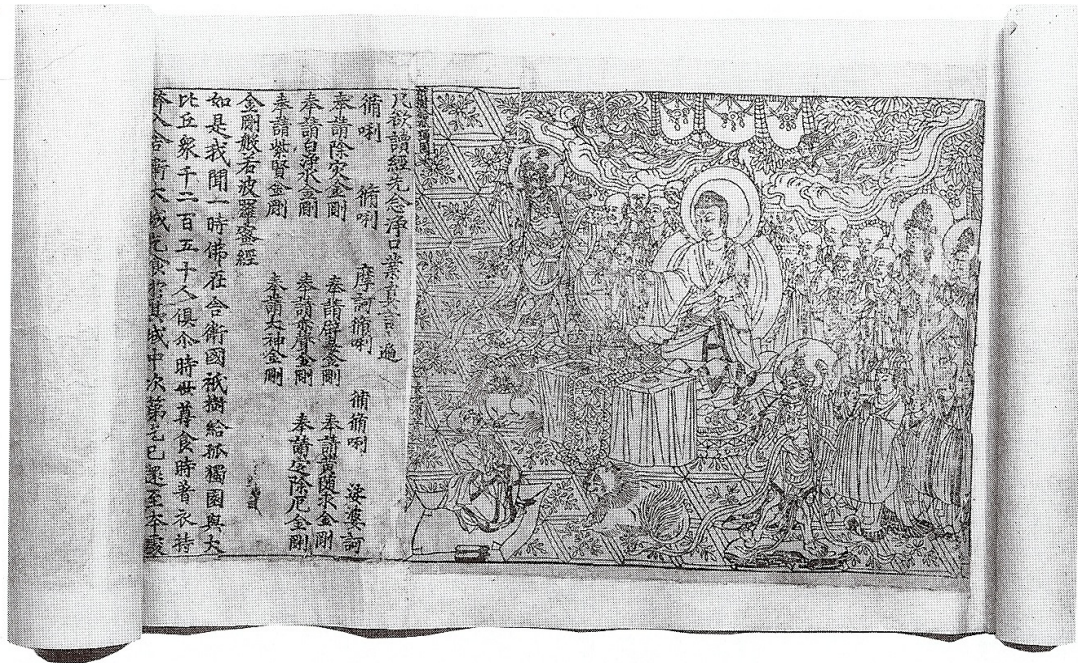 凡欲讀經先念淨口業真言一遍
脩唎 脩唎 摩訶脩唎 脩脩唎 娑婆訶
奉請除灾金剛 奉請辟毒金剛 奉請黃隨求金剛
奉請白淨水金剛 奉請赤聲金剛 奉請定除厄金剛
奉請紫賢金剛 奉請大神金剛
金剛般若波羅蜜經
如是我聞一時佛在舍衛國祇樹給孤獨園與大
比丘衆千二百五十人俱尒時世尊食時着衣持
鉢入舍衛大城乞食於其城中次第乞已還至本處